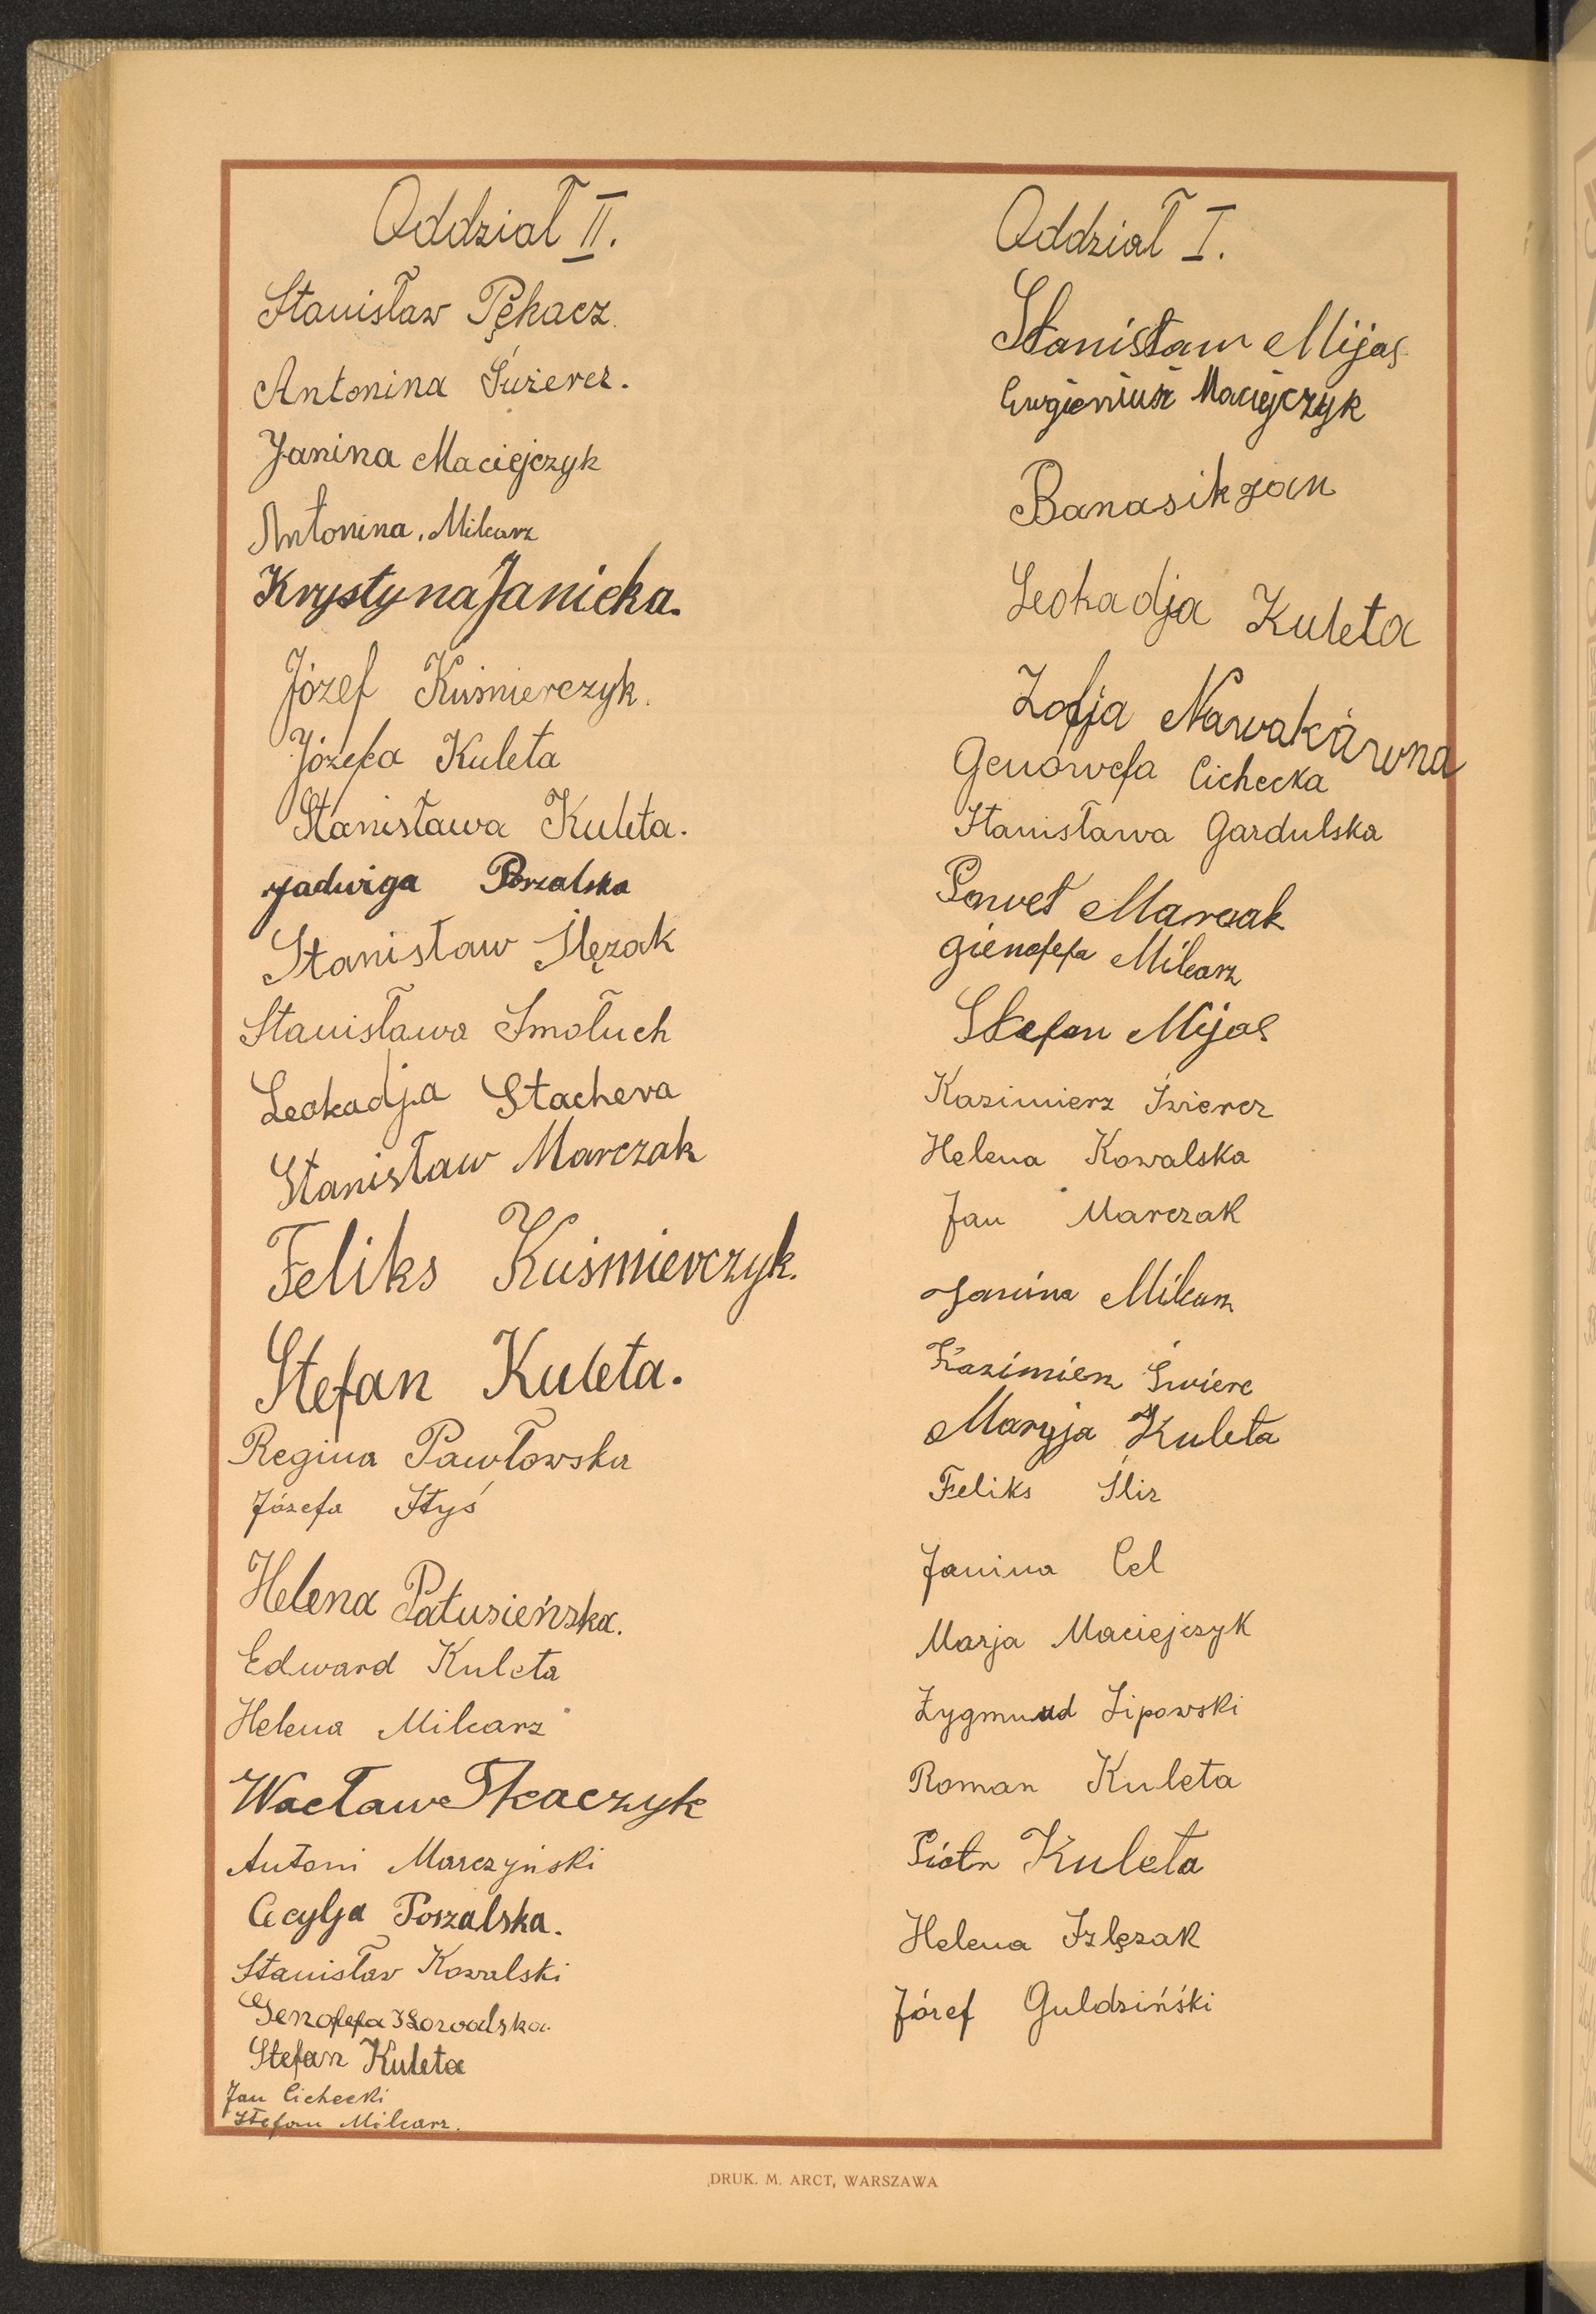 Oddział II.
Stanisław Pękacz.
Antonina Świercz.
Janina Maciejczyk
Antonina. Milcarz
Krystyna Janicka.
Józef Kuśmierczyk.
Józefa Kuleta
Stanisława Kuleta.
Jadwiga Porzalska
Stanisław Ślęzak
Stanisława Smołuch
Leokadja Stachera
Stanisław Marczak
Feliks Kuśmierczyk.
Stefan Kuleta.
Regina Pawłowska
Józefa Styś
Helena Patusieńska.
Edward Kuleta
Helena Milcarz
Wacław Tkaczyk
Antoni Marczyński
Cecylja Poszalska.
Stanisław Kowalski
Genofefa Kowalska.
Stefan Kuleta
Jan Cichecki
Stefan Milcarz.
Oddział I.
Stanisław Mijas
Eugieniusz Maciejczyk
Banasik Jan
Leokadja Kuleta
Zofja Nawakówna
Genowefa Cichecka
Stanisława Gardulska
Paweł Marczak
Gienofefa Milcarz
Stefan Mijas
Kazimierz Świercz
Helena Kowalska
Jan Marczak
Janina Milcarz
Kazimierz Świerc
Maryja Kuleta
Feliks Śliz
Janina Cel
Marja Maciejczyk
Zygmund Lipowski
Roman Kuleta
Piotr Kuleta
Helena Szlęzak
Józef Guldziński
DRUK. M. ARCT, WARSZAWA